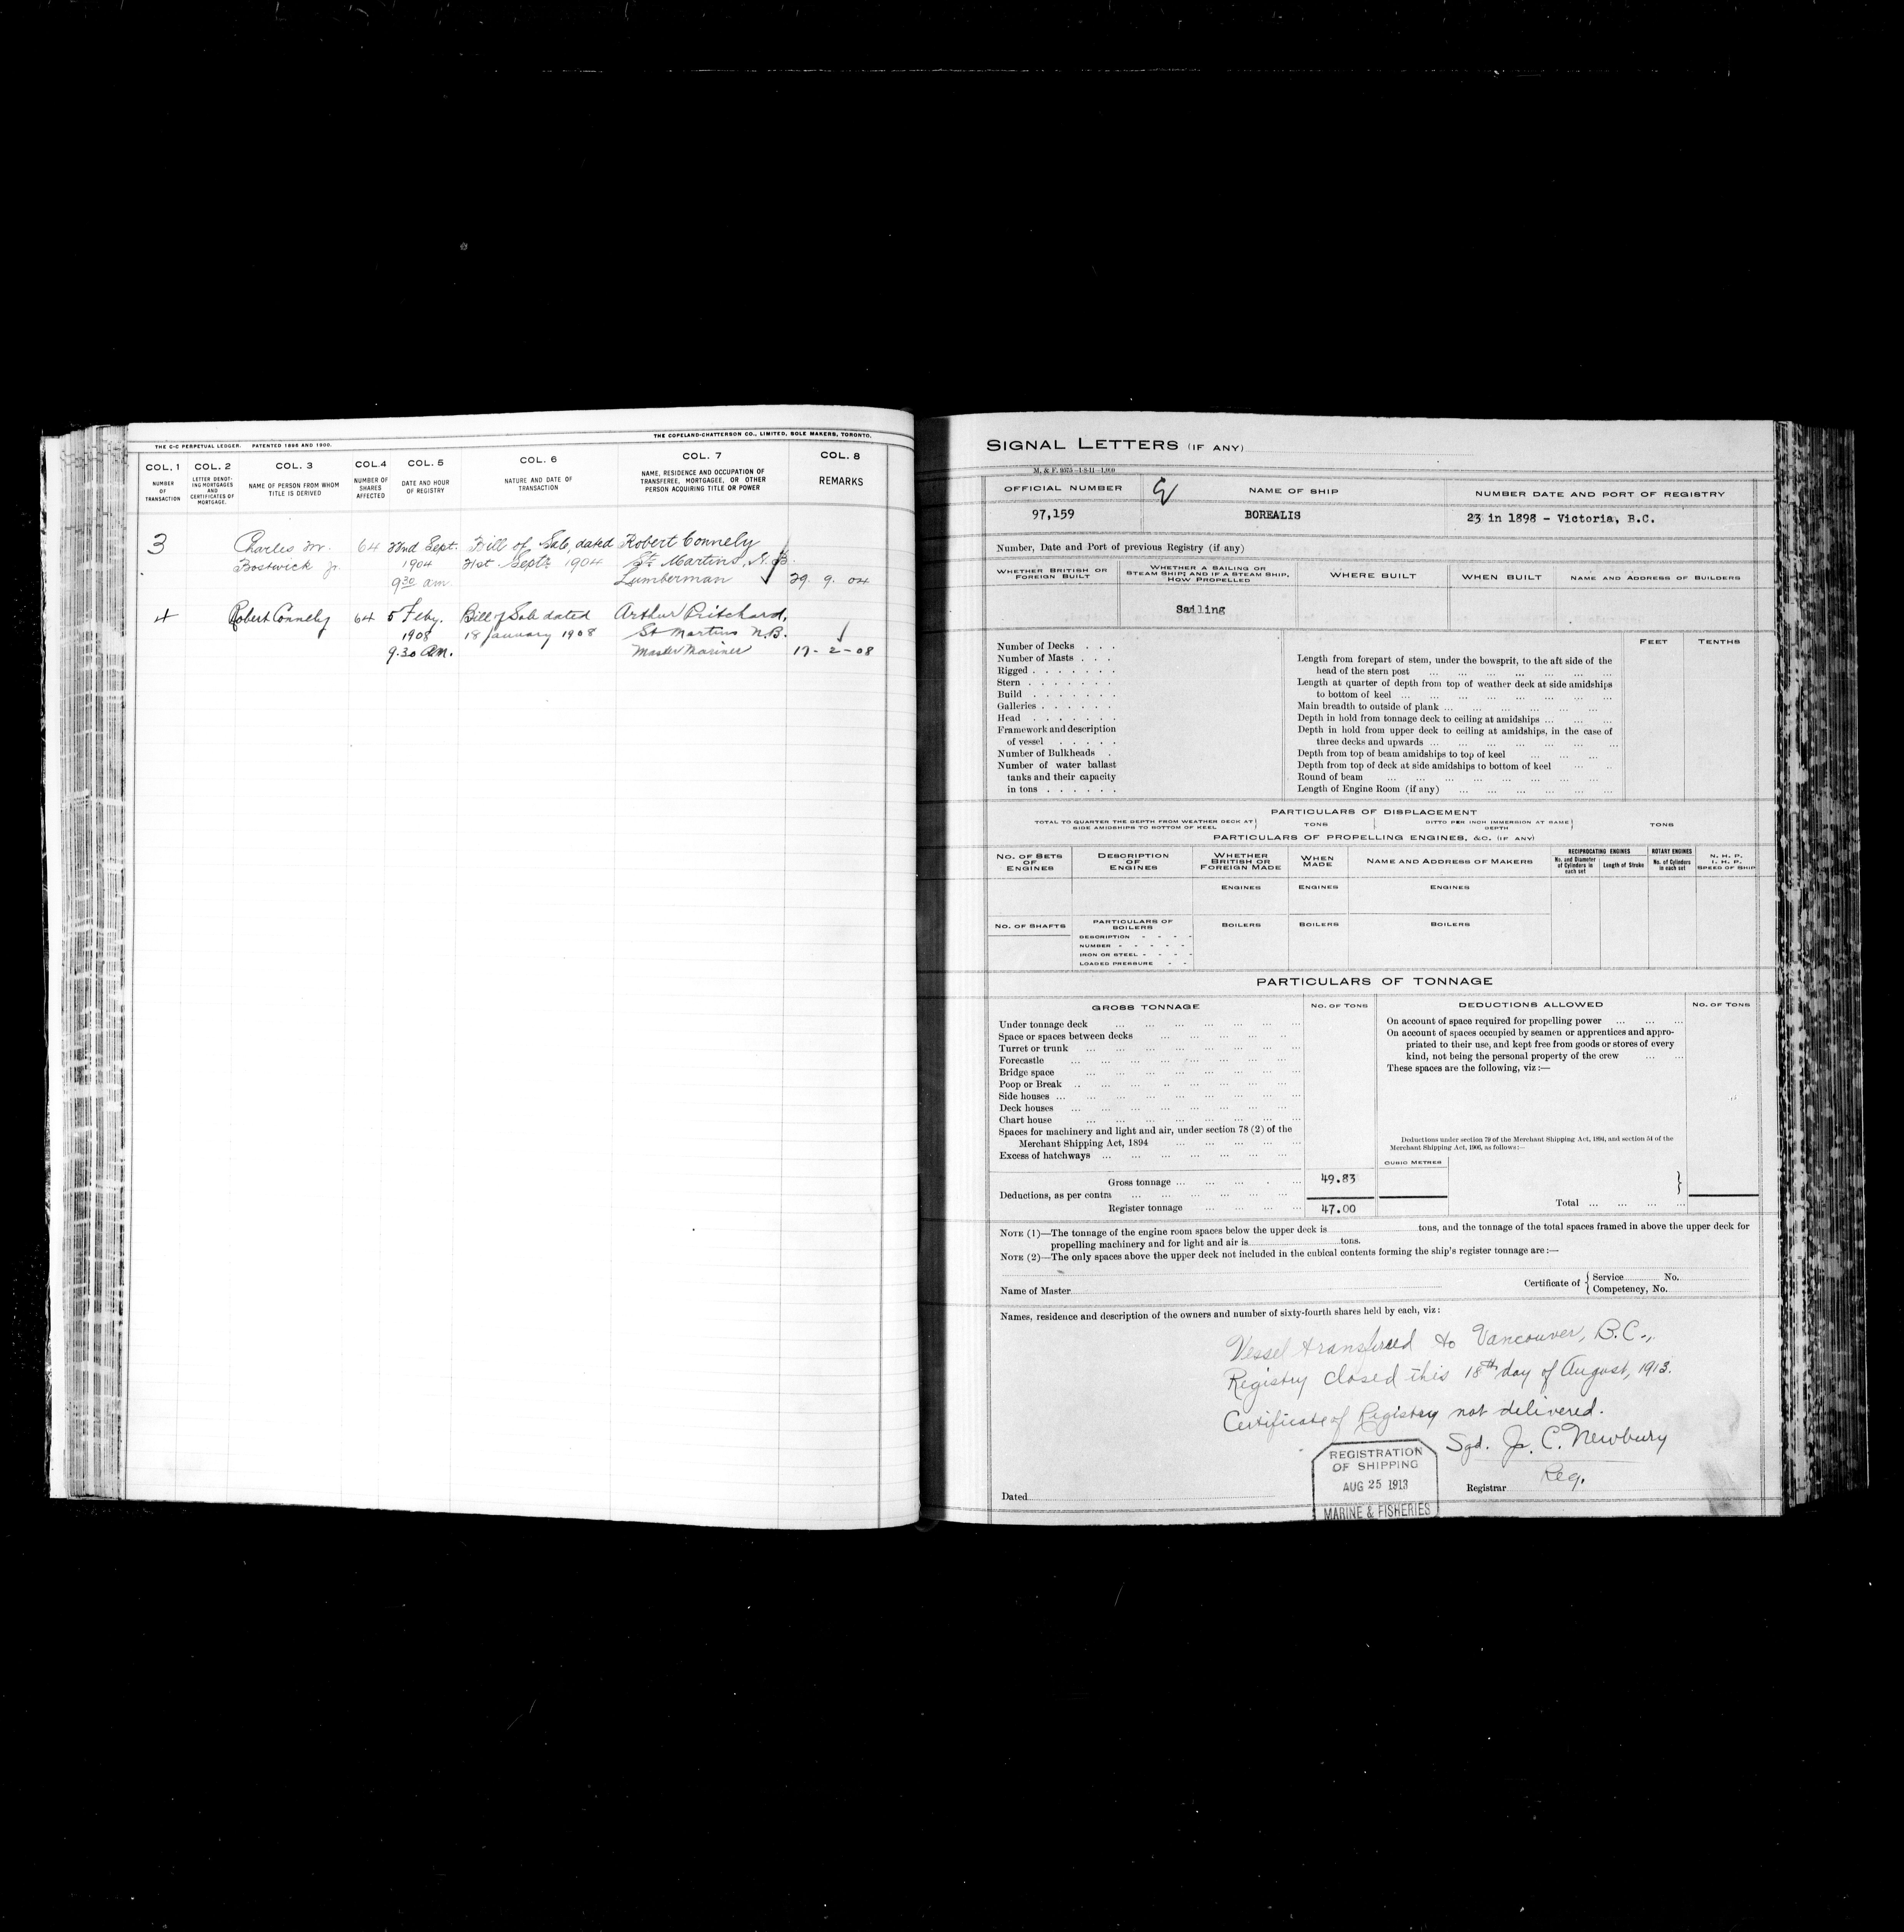 THE C-C PERPETUAL LEDGER. PATENTED 1896 AND 1900.
THE COPELAND-CHATTERSON CO., LIMITED, SOLE MAKERS, TORONTO.
COL. 1 COL. 2 COL. 3 COL. 4 COL. 5 COL. 6 COL. 7 COL. 8
NUMBER OF TRANSACTION
LETTER DENOTING MORTGAGES AND CERTIFICATES OF MORTGAGE.
NAME OF PERSON FROM WHOM TITLE IS DERIVED
NUMBER OF SHARES AFFECTED
DATE AND HOUR OF REGISTRY
NATURE AND DATE OF TRANSACTION
NAME, RESIDENCE AND OCCUPATION OF TRANSFEREE, MORTGAGEE, OR OTHER PERSON ACQUIRING TITLE OR POWER
REMARKS
3 Charles M. 64 22nd Sept. Bill of Sale, dated Robert Connely
Bostwick Jr. 1904 21st Septr 1904 St. Martins, N.B.
9.30 am. Lumberman 29. 9. 04
4 Robert Connely 64 5 Feby. Bill of Sale dated Arthur Pritchard,
1908 18 January 1908 St Martins N.B.
9.30 A.M. Master Mariner 17-2-08
SIGNAL LETTERS (IF ANY)
M. & F. 1-8-11-1,000
OFFICIAL NUMBER NAME OF SHIP NUMBER DATE AND PORT OF REGISTRY
97,159 BOREALIS 23 in 1898 - Victoria, B.C.
Number, Date and Port of previous Registry (if any)
WHETHER BRITISH OR FOREIGN BUILT
WHETHER A SAILING OR STEAM SHIP; AND IF A STEAM SHIP, HOW PROPELLED
WHERE BUILT WHEN BUILT NAME AND ADDRESS OF BUILDERS
Sailing
FEET TENTHS
Number of Decks . . .
Number of Masts . . .
Rigged . . . . . . .
Stern . . . . . . .
Build . . . . . . .
Galleries . . . . . .
Head . . . . . . .
Framework and description
of vessel . . . . .
Number of Bulkheads .
Number of water ballast
tanks and their capacity
in tons . . . . . .
Length from forepart of stem, under the bowsprit, to the aft side of the
head of the stern post
Length at quarter of depth from top of weather deck at side amidships
to bottom of keel
Main breadth to outside of plank
Depth in hold from tonnage deck to ceiling at amidships
Depth in hold from upper deck to ceiling at amidships, in the case of
three decks and upwards
Depth from top of beam amidships to top of keel
Depth from top of deck at side amidships to bottom of keel
Round of beam
Length of Engine Room (if any)
PARTICULARS OF DISPLACEMENT
TOTAL TO QUARTER THE DEPTH FROM WEATHER DECK AT SIDE AMIDSHIPS TO BOTTOM OF KEEL } TONS
DITTO PER INCH IMMERSION AT SAME DEPTH } TONS
PARTICULARS OF PROPELLING ENGINES, &C. (IF ANY)
NO. OF SETS OF ENGINES
DESCRIPTION OF ENGINES
WHETHER BRITISH OR FOREIGN MADE
WHEN MADE
NAME AND ADDRESS OF MAKERS
RECIPROCATING ENGINES
No. and Diameter of Cylinders in each set
Length of Stroke
ROTARY ENGINES
No. of Cylinders in each set
N. H. P.
I. H. P.
SPEED OF SHIP
ENGINES ENGINES ENGINES
NO. OF SHAFTS
PARTICULARS OF BOILERS
BOILERS BOILERS BOILERS
DESCRIPTION
NUMBER
IRON OR STEEL
LOADED PRESSURE
PARTICULARS OF TONNAGE
GROSS TONNAGE NO. OF TONS DEDUCTIONS ALLOWED NO. OF TONS
Under tonnage deck
Space or spaces between decks
Turret or trunk
Forecastle
Bridge space
Poop or Break
Side houses
Deck houses
Chart house
Spaces for machinery and light and air, under section 78 (2) of the
Merchant Shipping Act, 1894
Excess of hatchways
Gross tonnage 49.83
Deductions, as per contra
Register tonnage 47.00
On account of space required for propelling power
On account of spaces occupied by seamen or apprentices and appro-
priated to their use, and kept free from goods or stores of every
kind, not being the personal property of the crew
These spaces are the following, viz:—
Deductions under section 79 of the Merchant Shipping Act, 1894, and section 54 of the
Merchant Shipping Act, 1906, as follows:—
CUBIC METRES
Total
NOTE (1)—The tonnage of the engine room spaces below the upper deck is tons, and the tonnage of the total spaces framed in above the upper deck for
propelling machinery and for light and air is tons.
NOTE (2)—The only spaces above the upper deck not included in the cubical contents forming the ship's register tonnage are:—
Name of Master
Certificate of { Service No.
Competency, No.
Names, residence and description of the owners and number of sixty-fourth shares held by each, viz:
Vessel transferred to Vancouver, B.C.,
Registry closed this 18th day of August, 1913.
Certificate of Registry not delivered.
Sgd. J. C. Newbury
Reg.
REGISTRATION
OF SHIPPING
AUG 25 1913
MARINE & FISHERIES
Dated
Registrar